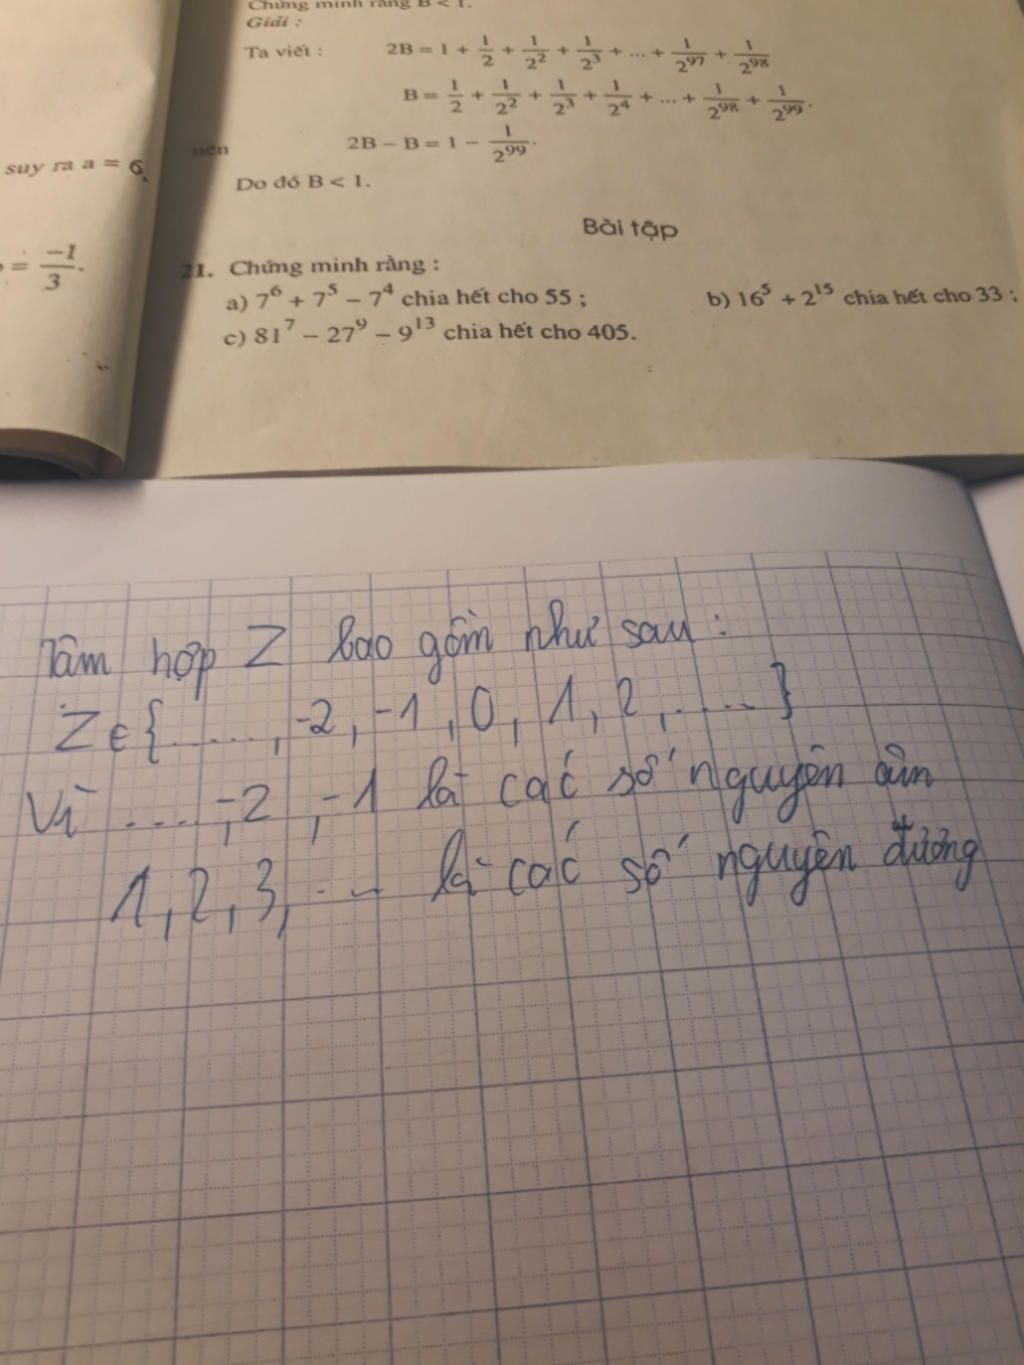 Chứng minh rằng B < 1.
Giải :
Ta viết : 2B = 1 + 1/2 + 1/2² + 1/2³ + ... + 1/2⁹⁷ + 1/2⁹⁸
B = 1/2 + 1/2² + 1/2³ + 1/2⁴ + ... + 1/2⁹⁸ + 1/2⁹⁹.
nên 2B − B = 1 − 1/2⁹⁹.
Do đó B < 1.
suy ra a = 6,
= −1/3.
Bài tập
21. Chứng minh rằng :
a) 7⁶ + 7⁵ − 7⁴ chia hết cho 55 ; b) 16⁵ + 2¹⁵ chia hết cho 33 ;
c) 81⁷ − 27⁹ − 9¹³ chia hết cho 405.
hợp Z bao gồm như sau :
Z∈{......, -2, -1, 0, 1, 2, .....}
Vì ...., -2, -1 là các số nguyên âm
1, 2, 3, ... là các số nguyên dương